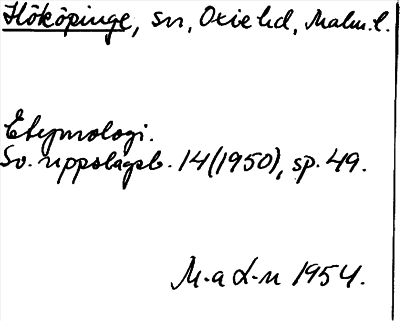 Hököpinge, sn, Oxie hd, Malm.l.
Etymologi.
Sv. uppslagsb. 14(1950), sp. 49.
M-a L-n 1954.